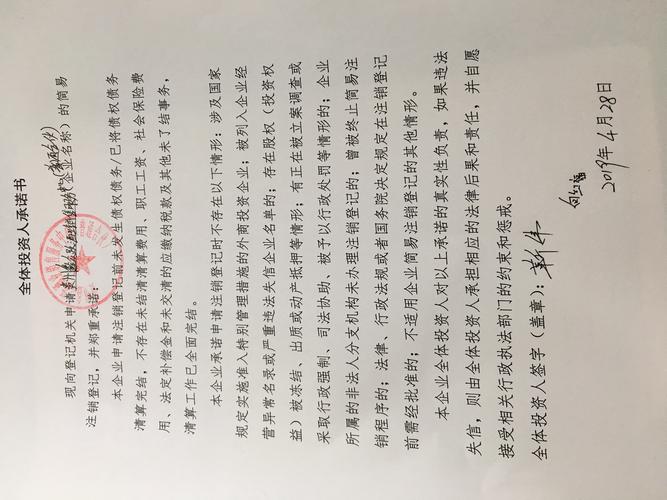 全体投资人承诺书
现向登记机关申请（企业名称）的简易
注销登记，并郑重承诺：
本企业申请注销登记前未发生债权债务/已将债权债务
清算完结，不存在未结清清算费用、职工工资、社会保险费
用、法定补偿金和未交清的应缴纳税款及其他未了结事务，
清算工作已全面完结。
本企业承诺申请注销登记时不存在以下情形：涉及国家
规定实施准入特别管理措施的外商投资企业；被列入企业经
营异常名录或严重违法失信企业名单的；存在股权（投资权
益）被冻结、出质或动产抵押等情形；有正在被立案调查或
采取行政强制、司法协助、被予以行政处罚等情形的；企业
所属的非法人分支机构未办理注销登记的；曾被终止简易注
销程序的；法律、行政法规或者国务院决定规定在注销登记
前需经批准的；不适用企业简易注销登记的其他情形。
本企业全体投资人对以上承诺的真实性负责，如果违法
失信，则由全体投资人承担相应的法律后果和责任，并自愿
接受相关行政执法部门的约束和惩戒。
全体投资人签字（盖章）：
2019年4月28日